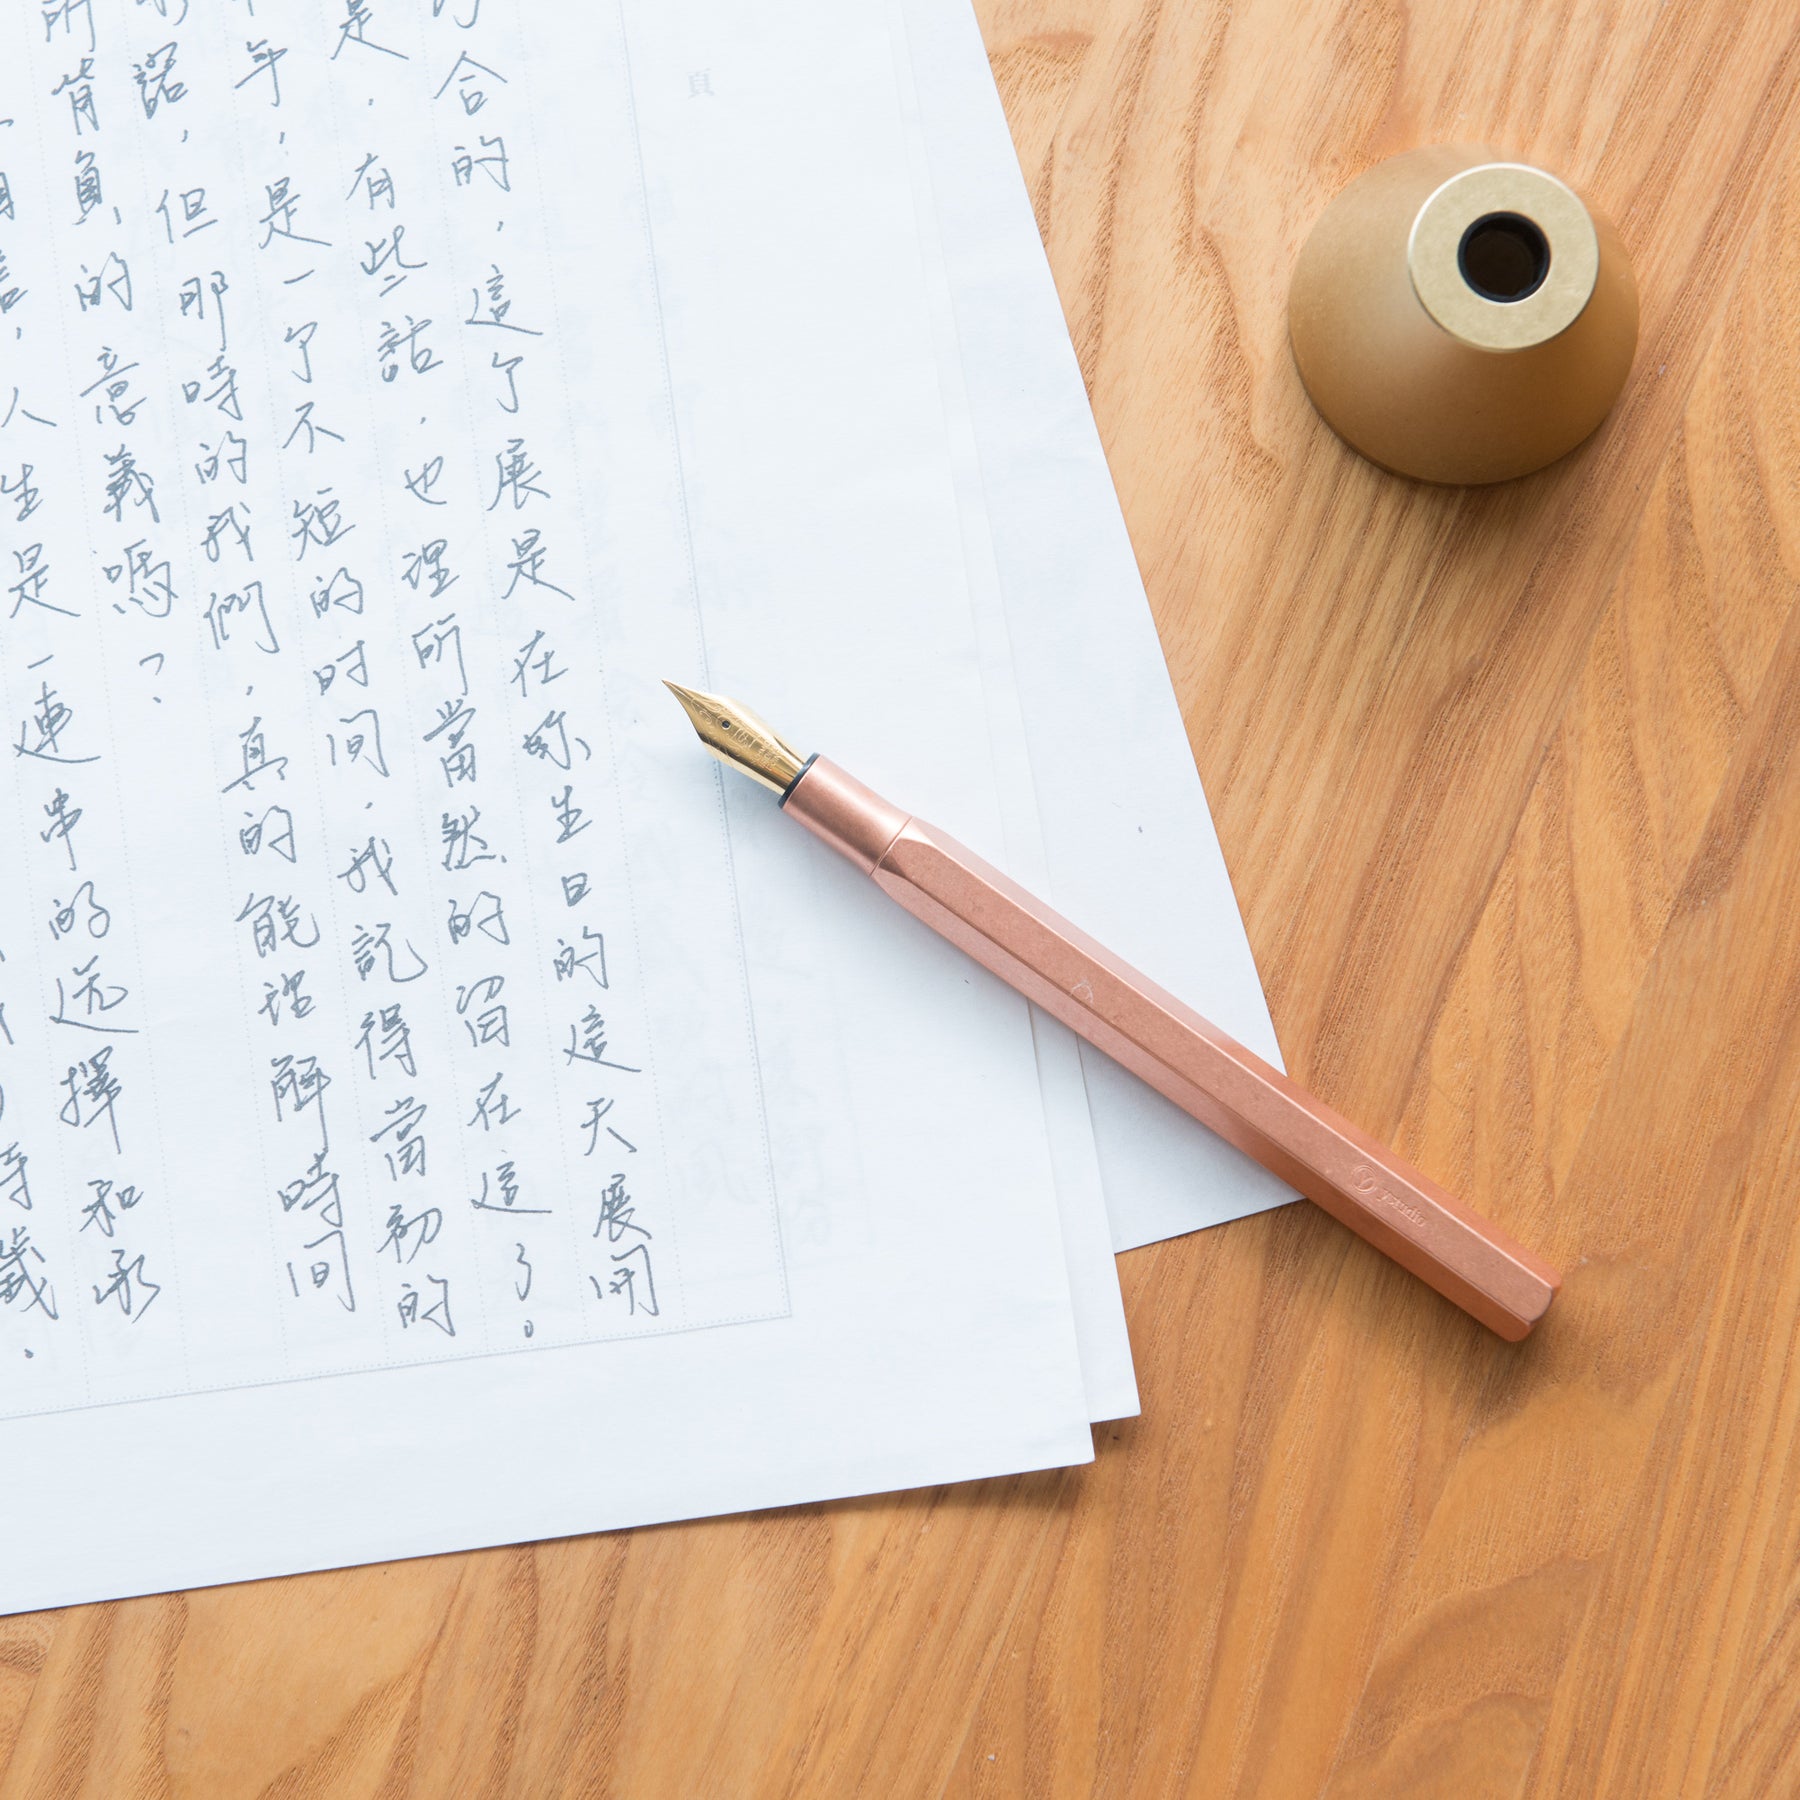 合的，這个展是在妳生日的這天展開
是，有些話，也理所當然的留在這了。
年，是一个不短的时间，我記得當初的
諾，但那時的我們，真的能理解時间
所背負的意義嗎？
，人生是一連串的选擇和承
J.studio